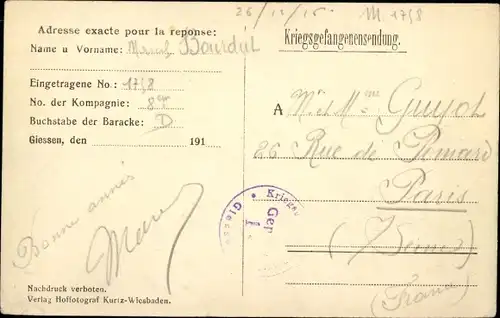 26/12/15 M 1758
Adresse exacte pour la reponse:
Name u Vorname: Marcel Bourdut
Kriegsgefangenensendung.
Eingetragene No.: 1758
No. der Kompagnie: 8
Buchstabe der Baracke: D
Giessen, den 191
A M. et Mme Guyot
86 Rue de
Paris
(Seine)
(France)
Kriegs
Gep
Giess
Bonne année
Marcel
Nachdruck verboten.
Verlag Hoffotograf Kurtz-Wiesbaden.